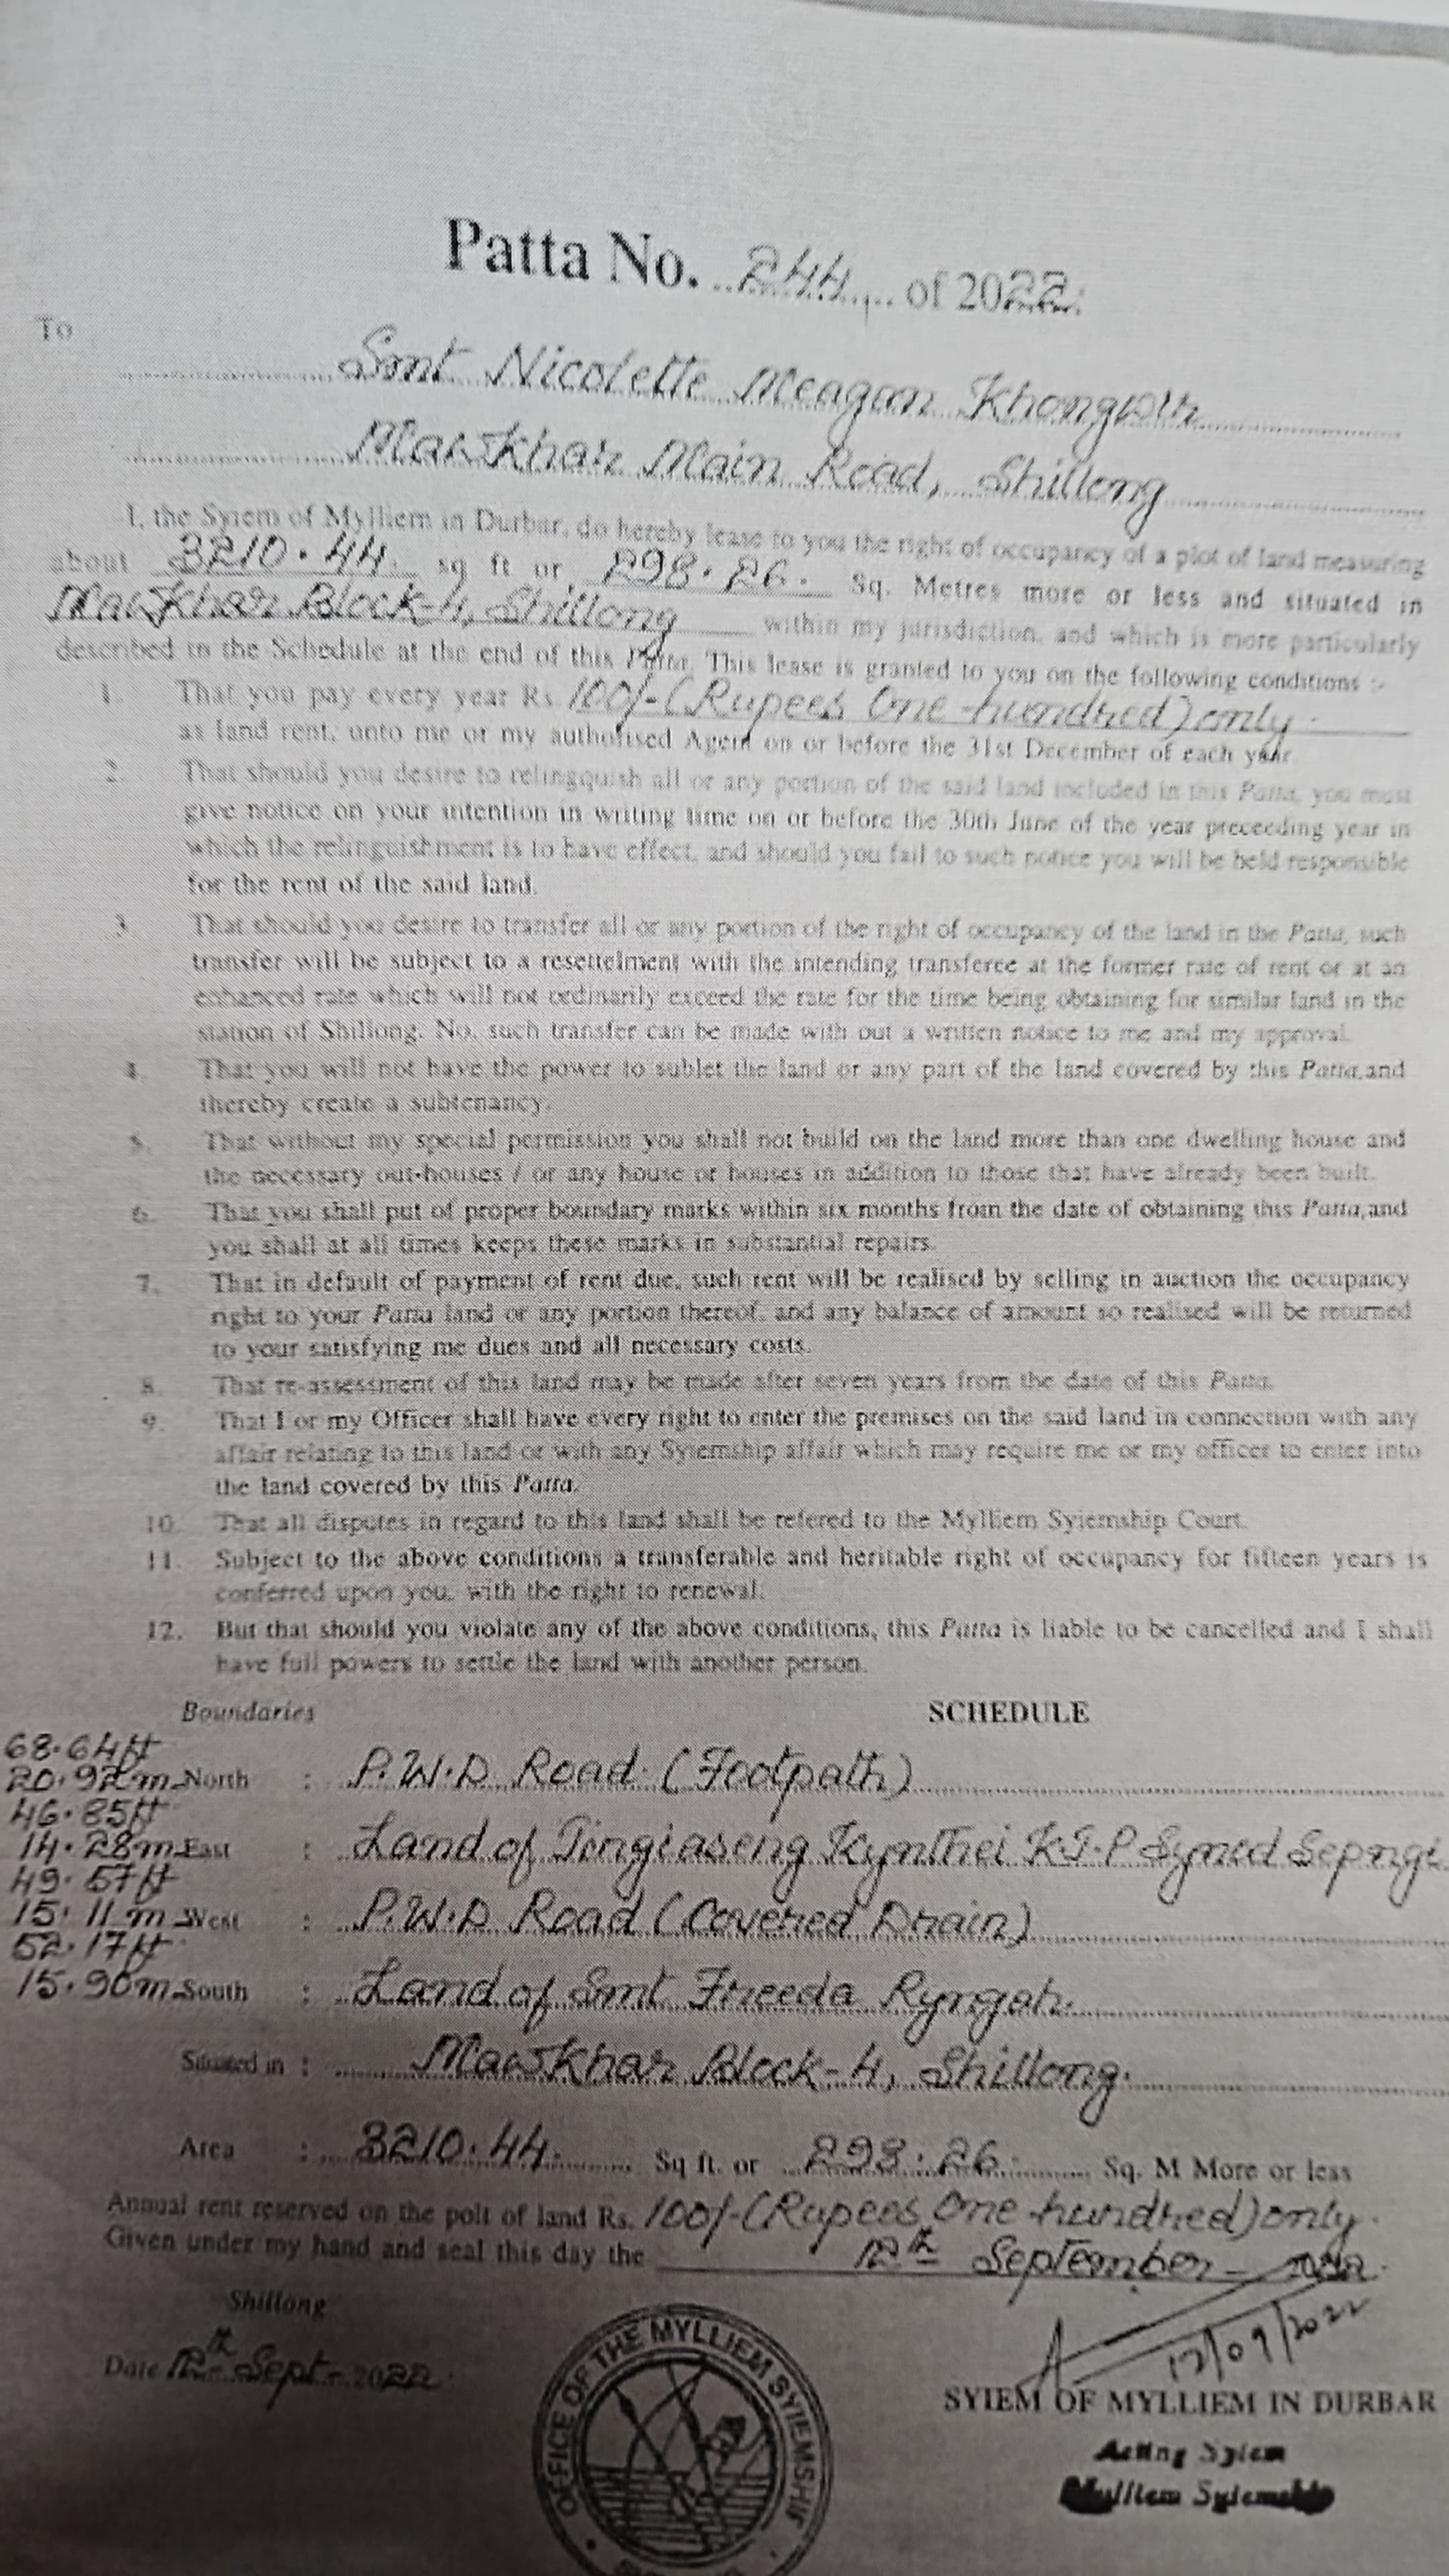 Patta No. 244 of 2022.
To
Smt Nicolette Meagan Khongwir
Mawkhar Main Road, Shillong
I, the Syiem of Mylliem in Durbar, do hereby lease to you the right of occupancy of a plot of land measuring
about 3210.44. sq ft or 298.26. Sq. Metres more or less and situated in
Mawkhar Block-4, Shillong within my jurisdiction, and which is more particularly
described in the Schedule at the end of this Patta. This lease is granted to you on the following conditions :-
1. That you pay every year Rs 100/-(Rupees One-hundred)only.
as land rent, unto me or my authorised Agent on or before the 31st December of each year.
2. That should you desire to relingquish all or any portion of the said land included in this Patta, you must
give notice on your intention in writing time on or before the 30th June of the year preceeding year in
which the relinguishment is to have effect, and should you fail to such notice you will be held responsible
for the rent of the said land.
3. That should you desire to transfer all or any portion of the right of occupancy of the land in the Patta, such
transfer will be subject to a resettelment with the intending transferee at the former rate of rent or at an
enhanced rate which will not ordinarily exceed the rate for the time being obtaining for similar land in the
station of Shillong. No, such transfer can be made with out a written notice to me and my approval.
4. That you will not have the power to sublet the land or any part of the land covered by this Patta,and
thereby create a subtenancy.
5. That without my special permission you shall not build on the land more than one dwelling house and
the necessary out-houses / or any house or houses in addition to those that have already been built.
6. That you shall put of proper boundary marks within six months from the date of obtaining this Patta,and
you shall at all times keeps these marks in substantial repairs.
7. That in default of payment of rent due, such rent will be realised by selling in auction the occupancy
right to your Patta land or any portion thereof, and any balance of amount so realised will be returned
to your satisfying me dues and all necessary costs.
8. That re-assessment of this land may be made after seven years from the date of this Patta.
9. That I or my Officer shall have every right to enter the premises on the said land in connection with any
affair relating to this land or with any Syiemship affair which may require me or my officer to enter into
the land covered by this Patta.
10. That all disputes in regard to this land shall be refered to the Mylliem Syiemship Court.
11. Subject to the above conditions a transferable and heritable right of occupancy for fifteen years is
conferred upon you, with the right to renewal.
12. But that should you violate any of the above conditions, this Patta is liable to be cancelled and I shall
have full powers to settle the land with another person.
Boundaries SCHEDULE
68.64ft
20.92m North : P.W.D Road (Footpath)
46.85ft
14.28m East : Land of Tongiaseng Kynthei K.J.P Synod Sepngi
49.57ft
15.11m West : P.W.D Road (Covered Drain)
52.17ft
15.90m South : Land of Smt Freeda Ryngah.
Situated in : Mawkhar Block-4, Shillong.
Area : 3210.44. Sq ft. or 298.26. Sq. M More or less
Annual rent reserved on the polt of land Rs. 100/-(Rupees One-hundred)only.
Given under my hand and seal this day the 12th September - 2022.
Shillong
Date 12th Sept - 2022.
12/09/2022
OFFICE OF THE MYLLIEM SYIEMSHIP
SYIEM OF MYLLIEM IN DURBAR
Acting Syiem
Mylliem Syiemship